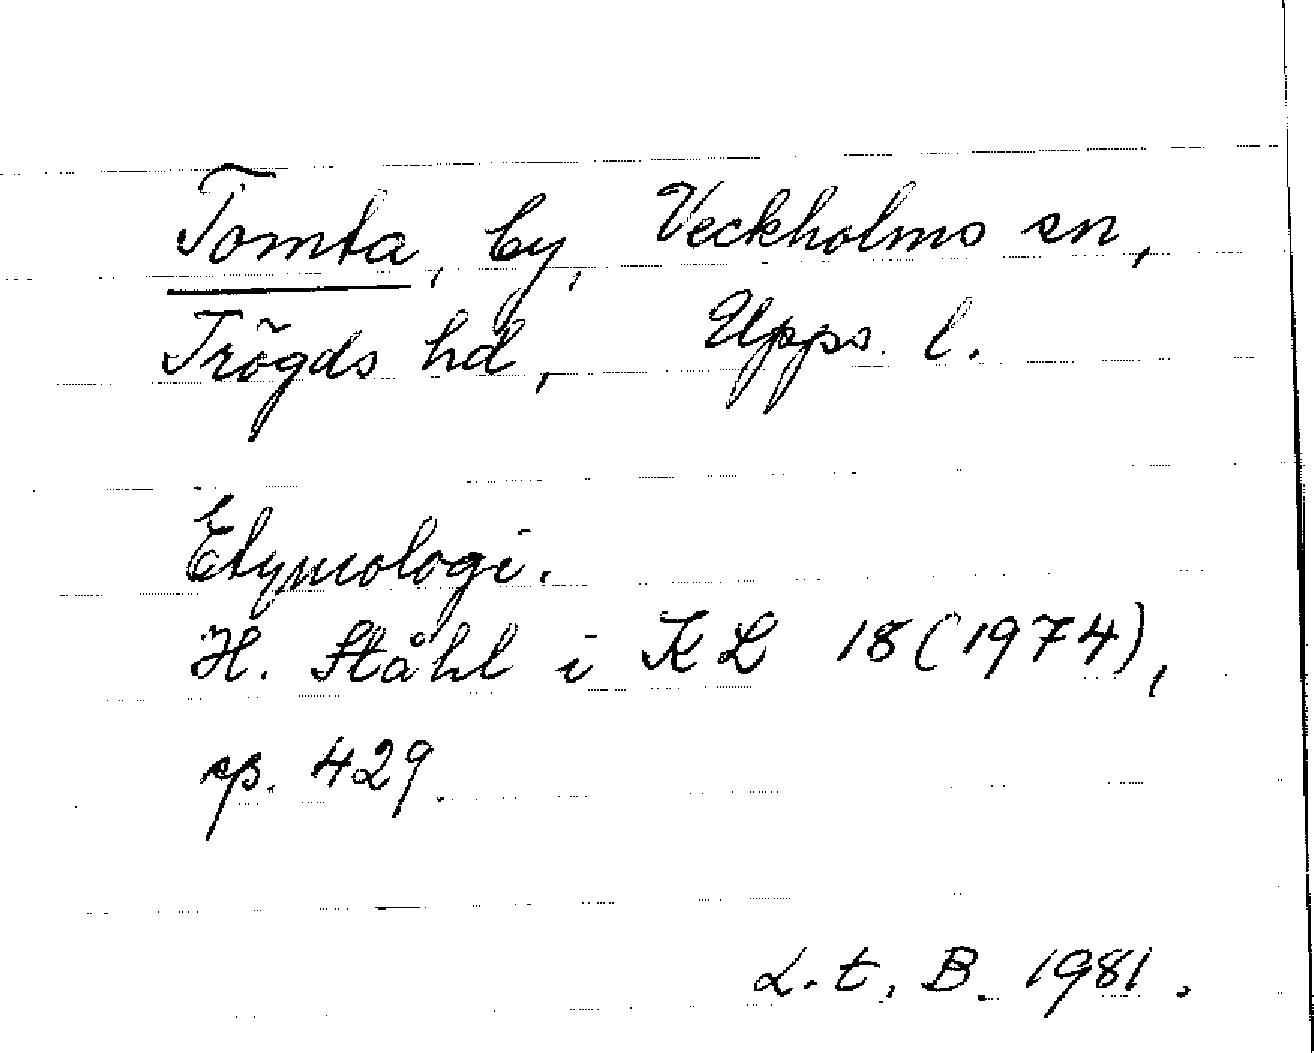 Tomta, by, Veckholms sn,
Trögds hd, Upps. l.
Etymologi.
H. Ståhl i KL 18 (1974),
sp. 429.
L.t. B. 1981.